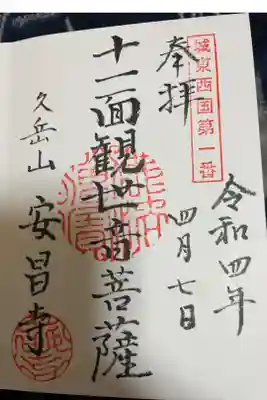 城東西国第一番
奉拝
令和四年
四月七日
十一面観世音菩薩
久岳山 安昌寺